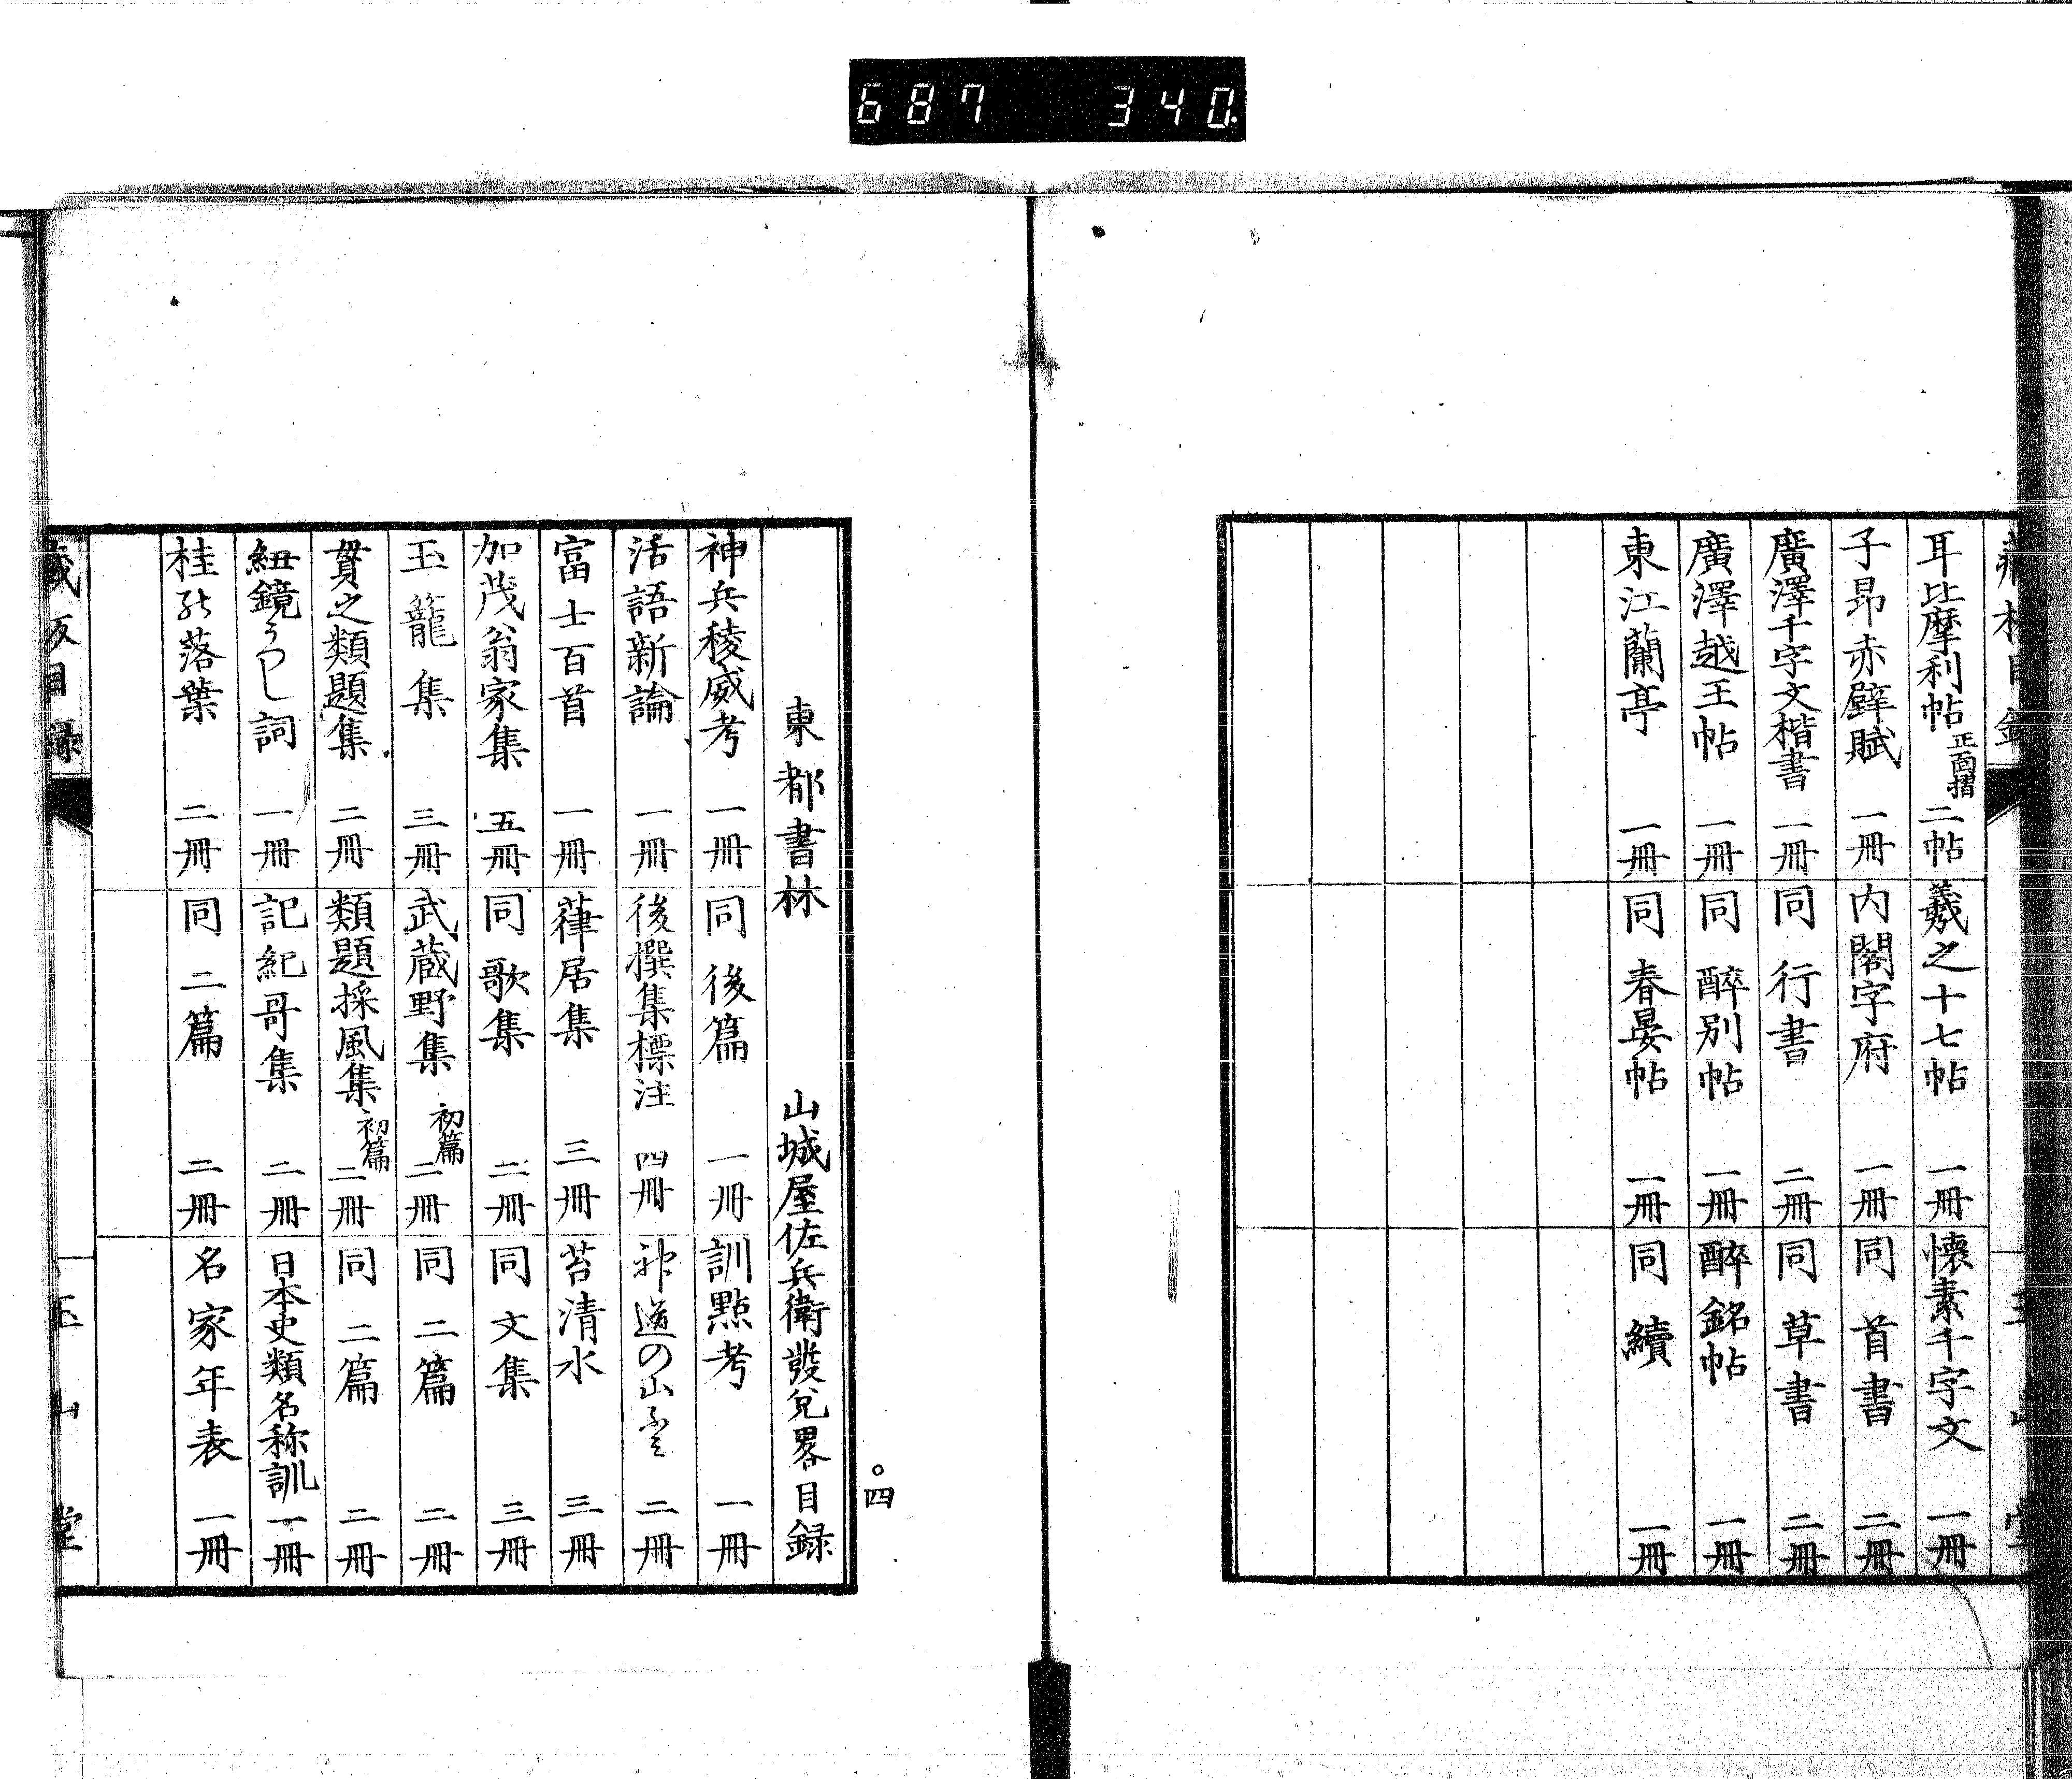 687 340.
耳比摩利帖 正面摺 二帖 羲之十七帖 一冊 懐素千字文 一冊
子昂赤壁賦 一冊 内閣字府 一冊 同 首書 二冊
廣澤千字文楷書 一冊 同 行書 二冊 同 草書 二冊
廣澤越王帖 一冊 同 醉別帖 一冊 醉銘帖 一冊
東江蘭亭 一冊 同 春晏帖 一冊 同 續 一冊
四
東都書林 山城屋佐兵衛發兌畧目録
神兵稜威考 一冊 同 後篇 一冊 訓點考 一冊
活語新論 一冊 後撰集標注 四冊 神道の山ふみ 二冊
富士百首 一冊 葎居集 三冊 苔清水 三冊
加茂翁家集 五冊 同 歌集 二冊 同 文集 三冊
玉籠集 三冊 武蔵野集 初篇 二冊 同 二篇 二冊
貫之類題集 二冊 類題採風集 初篇 二冊 同 二篇 二冊
紐鏡うつし詞 一冊 記紀哥集 二冊 日本史類名称訓 一冊
桂の落葉 二冊 同 二篇 二冊 名家年表 一冊
蔵板目録 玉山堂